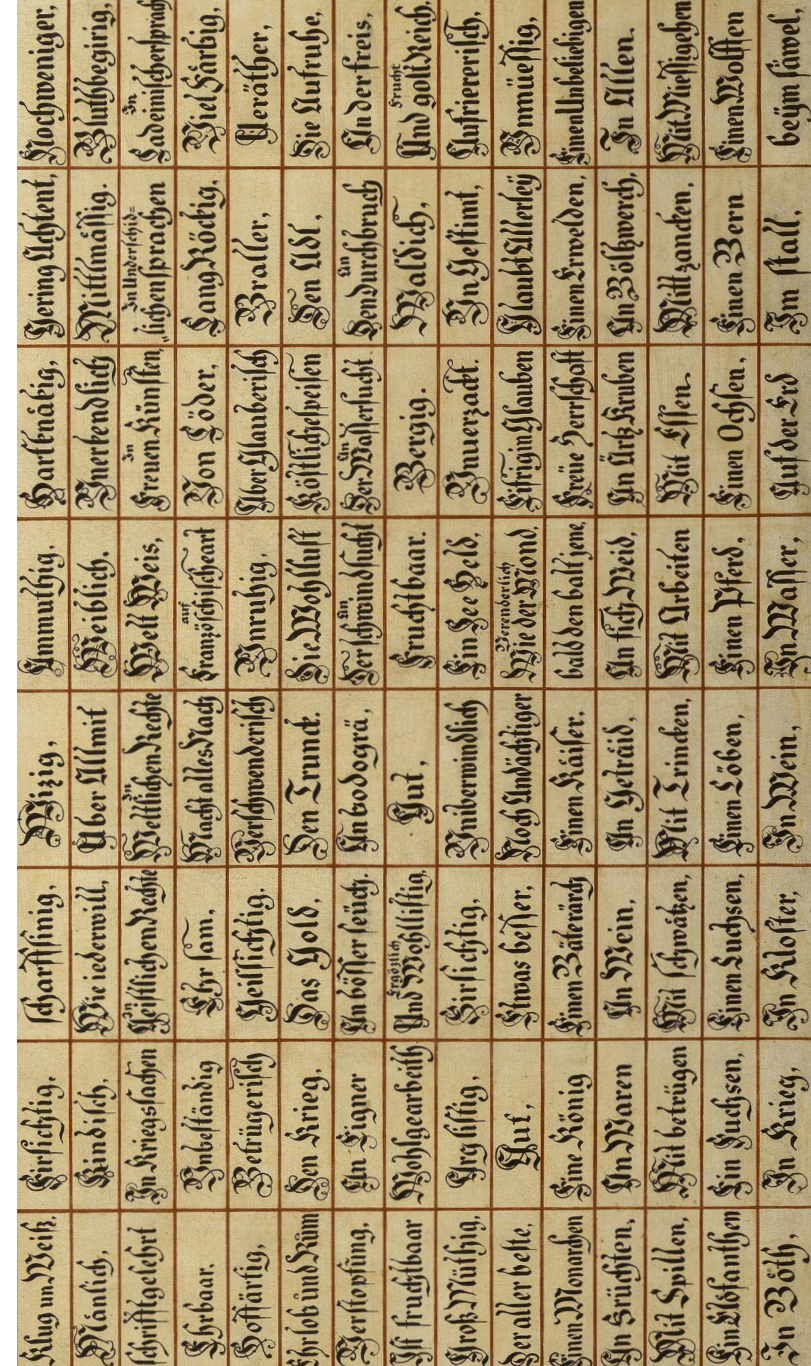 Klug un Weiß.
Firsichtig,
scharffsinig,
Wizig,
Ammuthig,
Hartknäkig,
Gering Achtent,
Nochweniger,
Mänlich,
Kindisch,
Wie iederwill,
Über Allmit
Weiblich.
Vnerkendlich
Mittlmässig.
Bluthbegirig,
schrifftgelehrt
In Kriegssachen
In
Geistlichen Rechte
In
Weltlichen Rechte
Welt Weis,
In
Freuen Künsten,
In Underschid=
„lichen sprachen
In
Ladeinischersprach
Ehrbaar.
Vnbeständig
Ehr sam,
Macht alles Nach
auf
Französchischeart
Von Löder,
Lang Röckig,
Viel Färbig,
Hoffärtig,
Betrügerisch
Geilsichtig,
Verschwenderisch
Vnruhig,
Aber Glauberisch
Braller,
Veräther,
Ehrlob und Rüm
Den Krieg,
Das Gold,
Den Trunck.
Die Wohllust
Köstlichespeisen
Den Adl,
Die Aufruhe,
Verstopfung,
An Eigner
An bösser seüch.
An bodogrä,
An
Der schwindsucht
An
Der Wassersucht
An
Den durchbruch
An der freis,
Ist fruchtbaar
Wohlgearbeith
Ergözlich
Und Wohllistig,
Gut,
Fruchtbaar.
Bergig.
Waldich,
Frucht
Und golt Reich,
Groß Müthig,
Arg listig,
Firsichtig,
Vniberwindlich
Ein See Held,
Vnverzackt.
Vn Gestimt,
Aufriererisch,
Der aller beste,
Gut,
Etwas besser,
Noch Andächtiger
Verenderlich
Wie der Mond,
Eiferigin Glauben
Glaubt Allerley
Vnmüessig,
Einen Monarchen
Eine König
Einen Bäterärch
Einen Käiser.
bald den balt jene,
Freüe Herrschaft
Einen Erwelden,
Einen Unbeliebigen
An Früchten,
An Waren
An Wein,
An Geträid,
An fich Weid,
An Ärtz Kruben
An Bölzwerch,
In Allen.
Mit Spillen,
Mit betrügen
Mit schwätzen,
Mit Trincken,
Mit Arbeiten
Mit Essen.
Mitt zancken,
Mit Miessigehen
Ein Elöfanthen
Ein Fuchsen,
Einen Luchsen,
Einen Löben,
Einen Pferd,
Einen Ochsen,
Einen Bern
Einen Wolffen
In Böth,
In Krieg,
In Kloster,
In Wein,
In Wasser,
Auf der Erd
Im stall,
beym säwel,